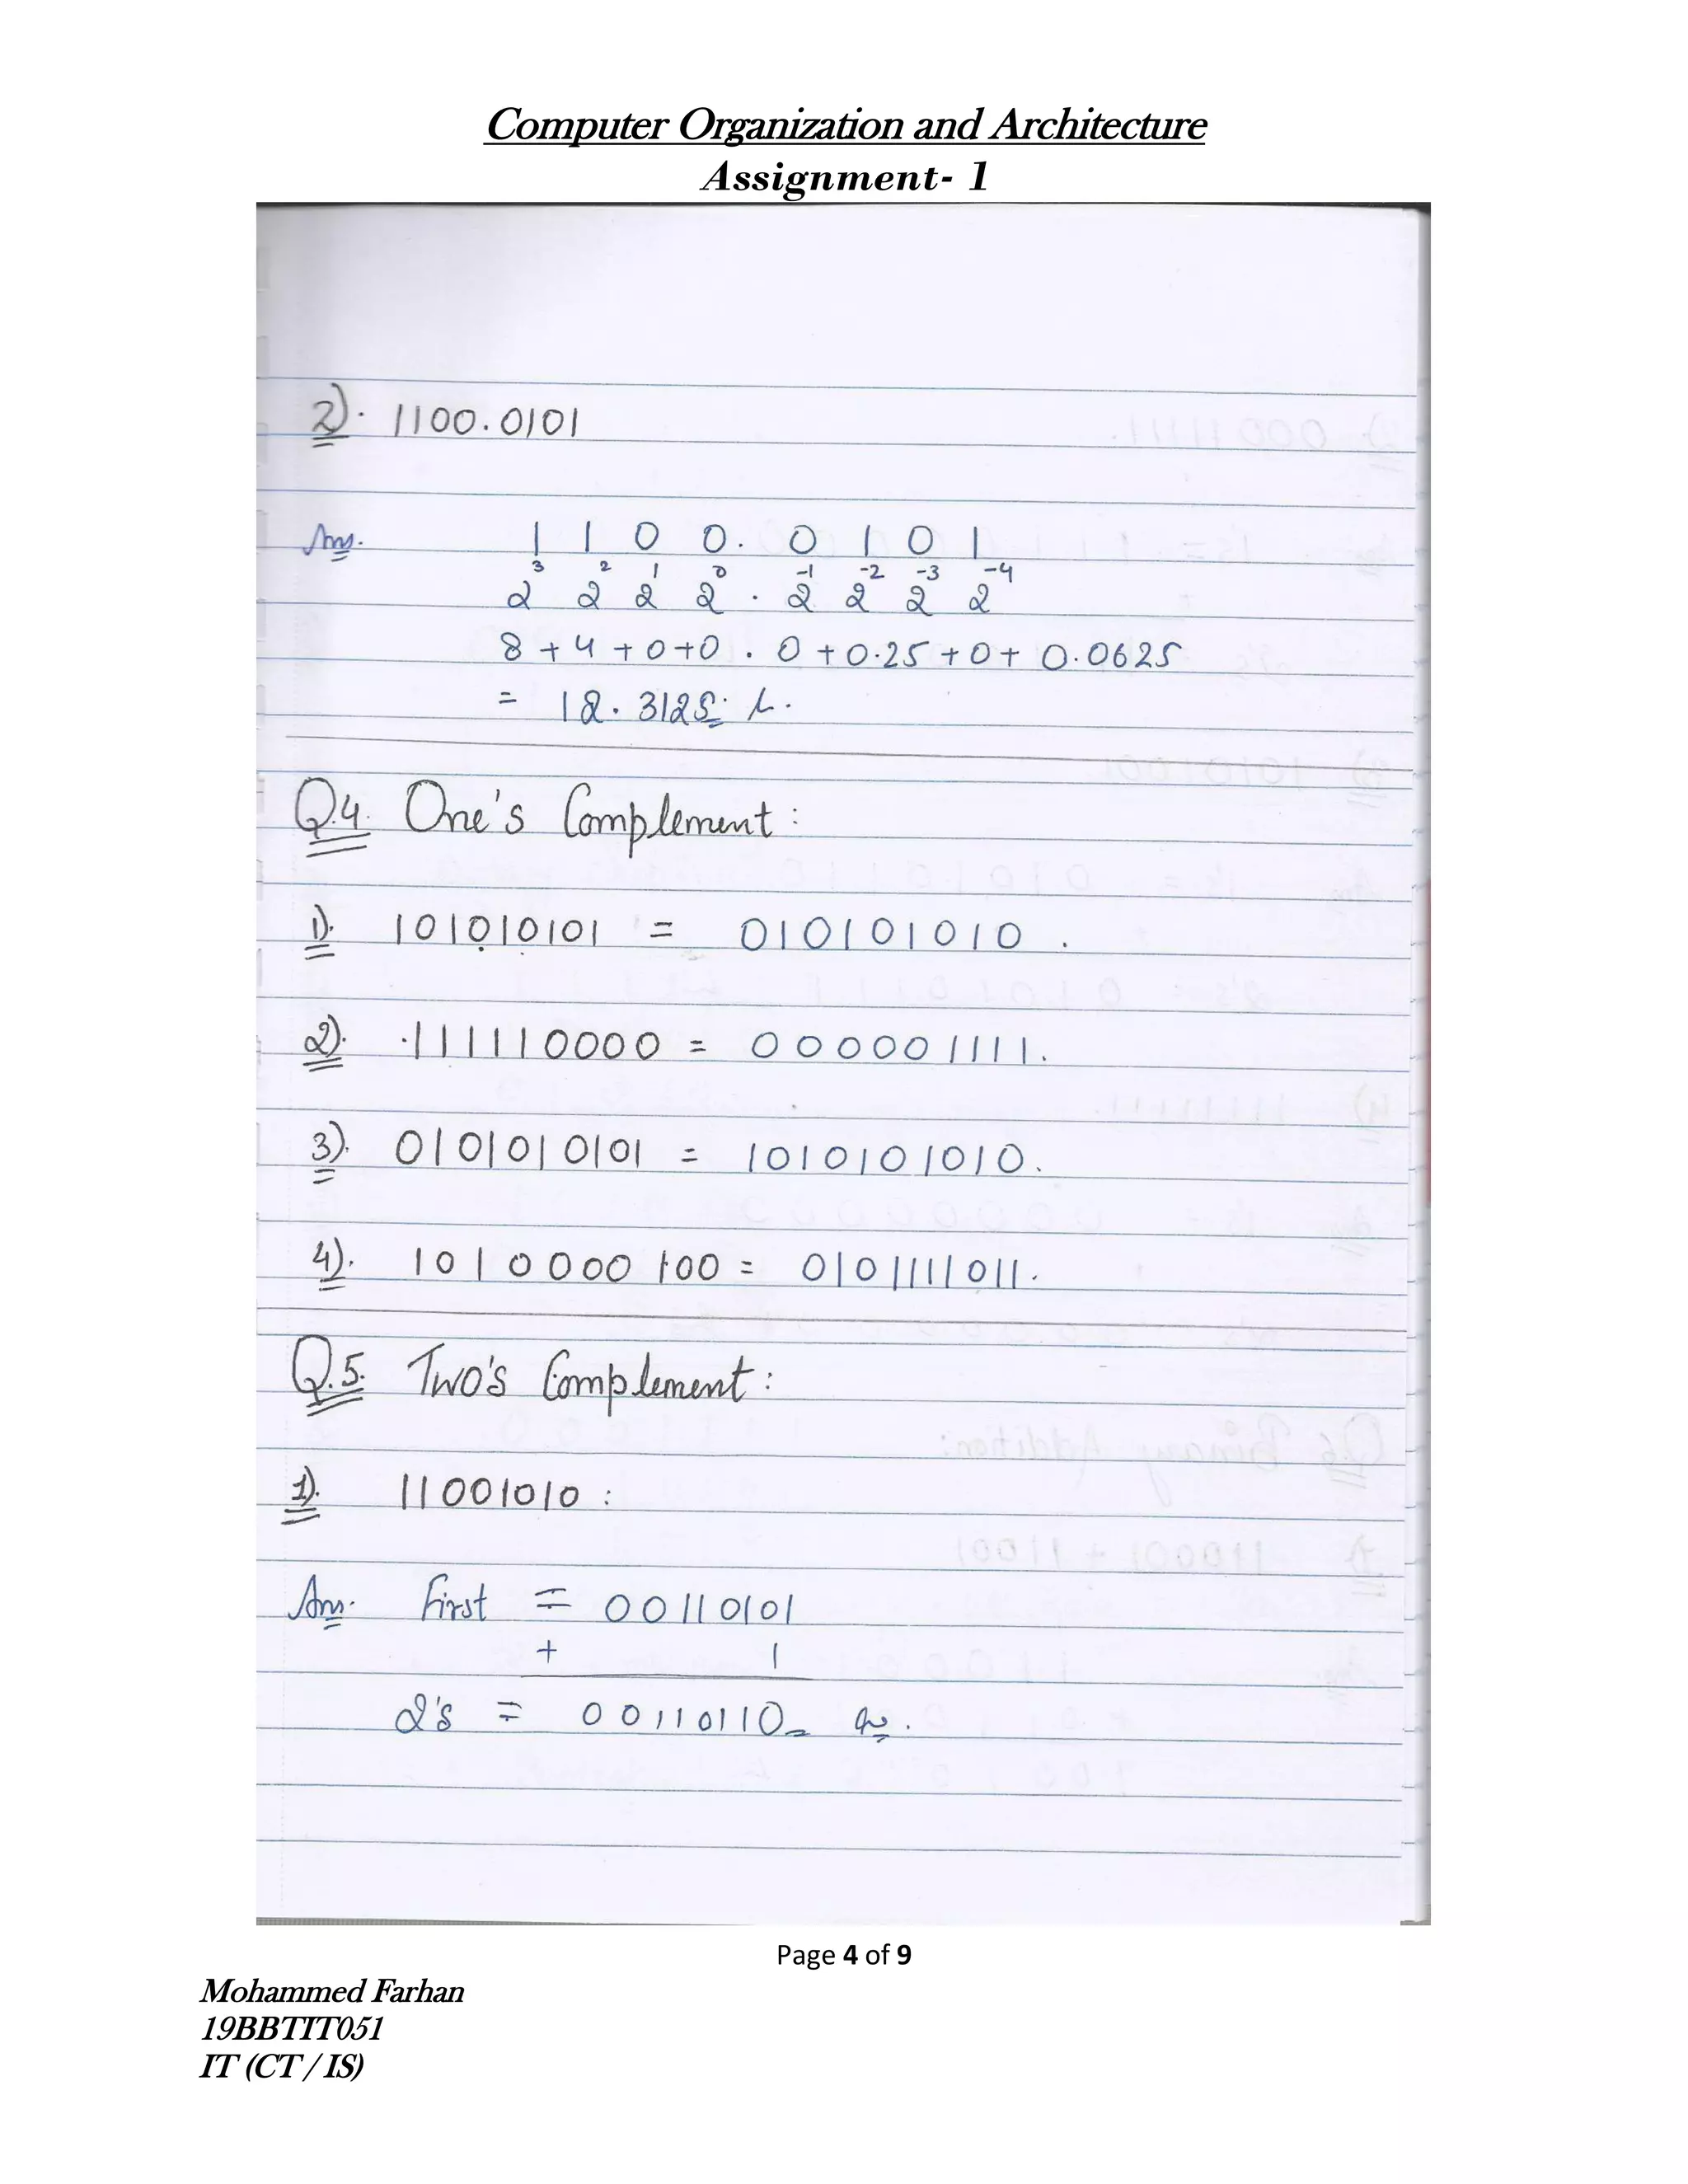 Computer Organization and Architecture
Assignment- 1
2). 1100.0101
Ans. 1 1 0 0. 0 1 0 1
3 2 1 0 -1 -2 -3 -4
2 2 2 2 . 2 2 2 2
8 + 4 + 0 + 0 . 0 + 0.25 + 0 + 0.0625
= 12.3125
Q.4. One's Complement:
1). 101010101 = 010101010.
2). 111110000 = 000001111.
3). 0101010101 = 1010101010.
4). 1010000100 = 0101111011.
Q.5. Two's Complement:
1). 11001010:
Ans. First = 00110101
+ 1
2's = 00110110
Page 4 of 9
Mohammed Farhan
19BBTIT051
IT (CT / IS)